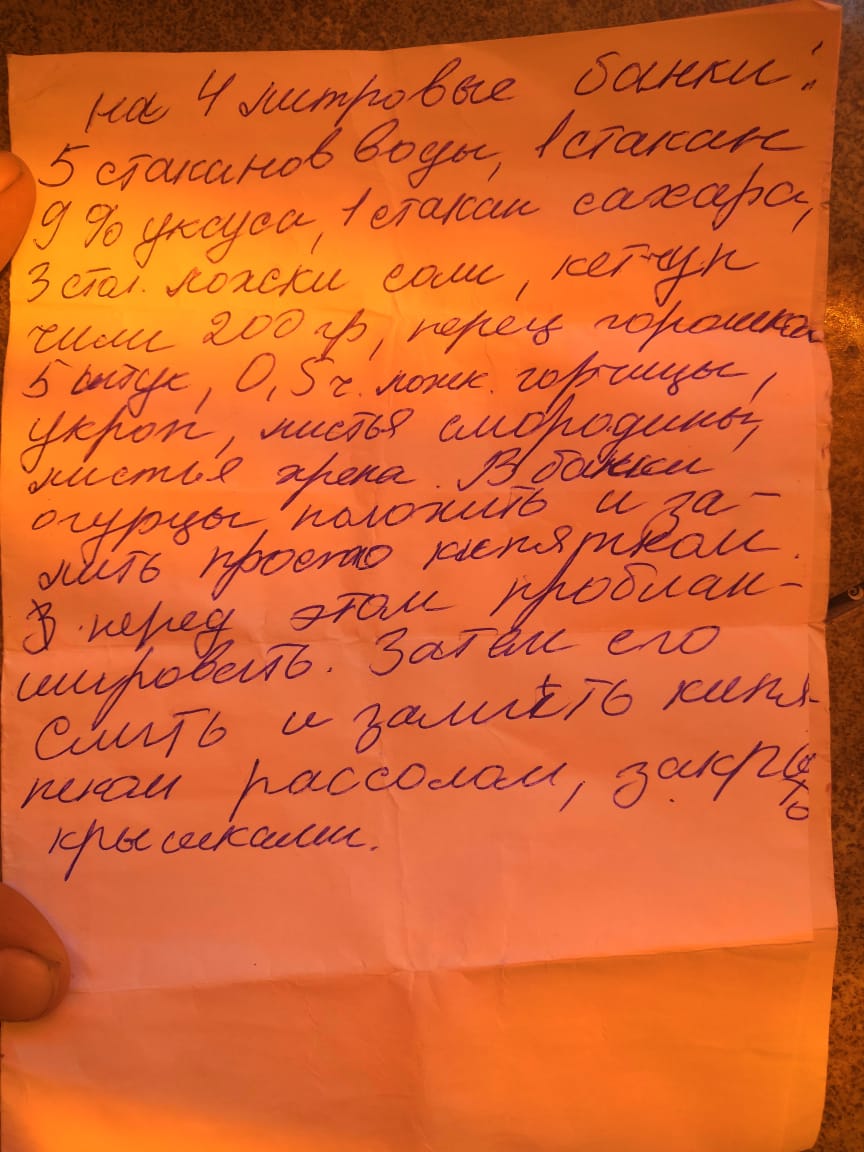 на 4 литровые банки:
5 стаканов воды, 1 стакан
9 % уксуса, 1 стакан сахара,
3 стол. ложки соли, кетчуп
чили 200 гр, перец горошком
5 штук, 0,5 ч. ложк. горчицы,
укроп, листья смородины,
листья хрена. В банки
огурцы положить и за-
лить просто кипятком.
перед этом проблан-
шировать. Затем его
слить и залить кипя-
щком рассолом, закрыть
крышками.